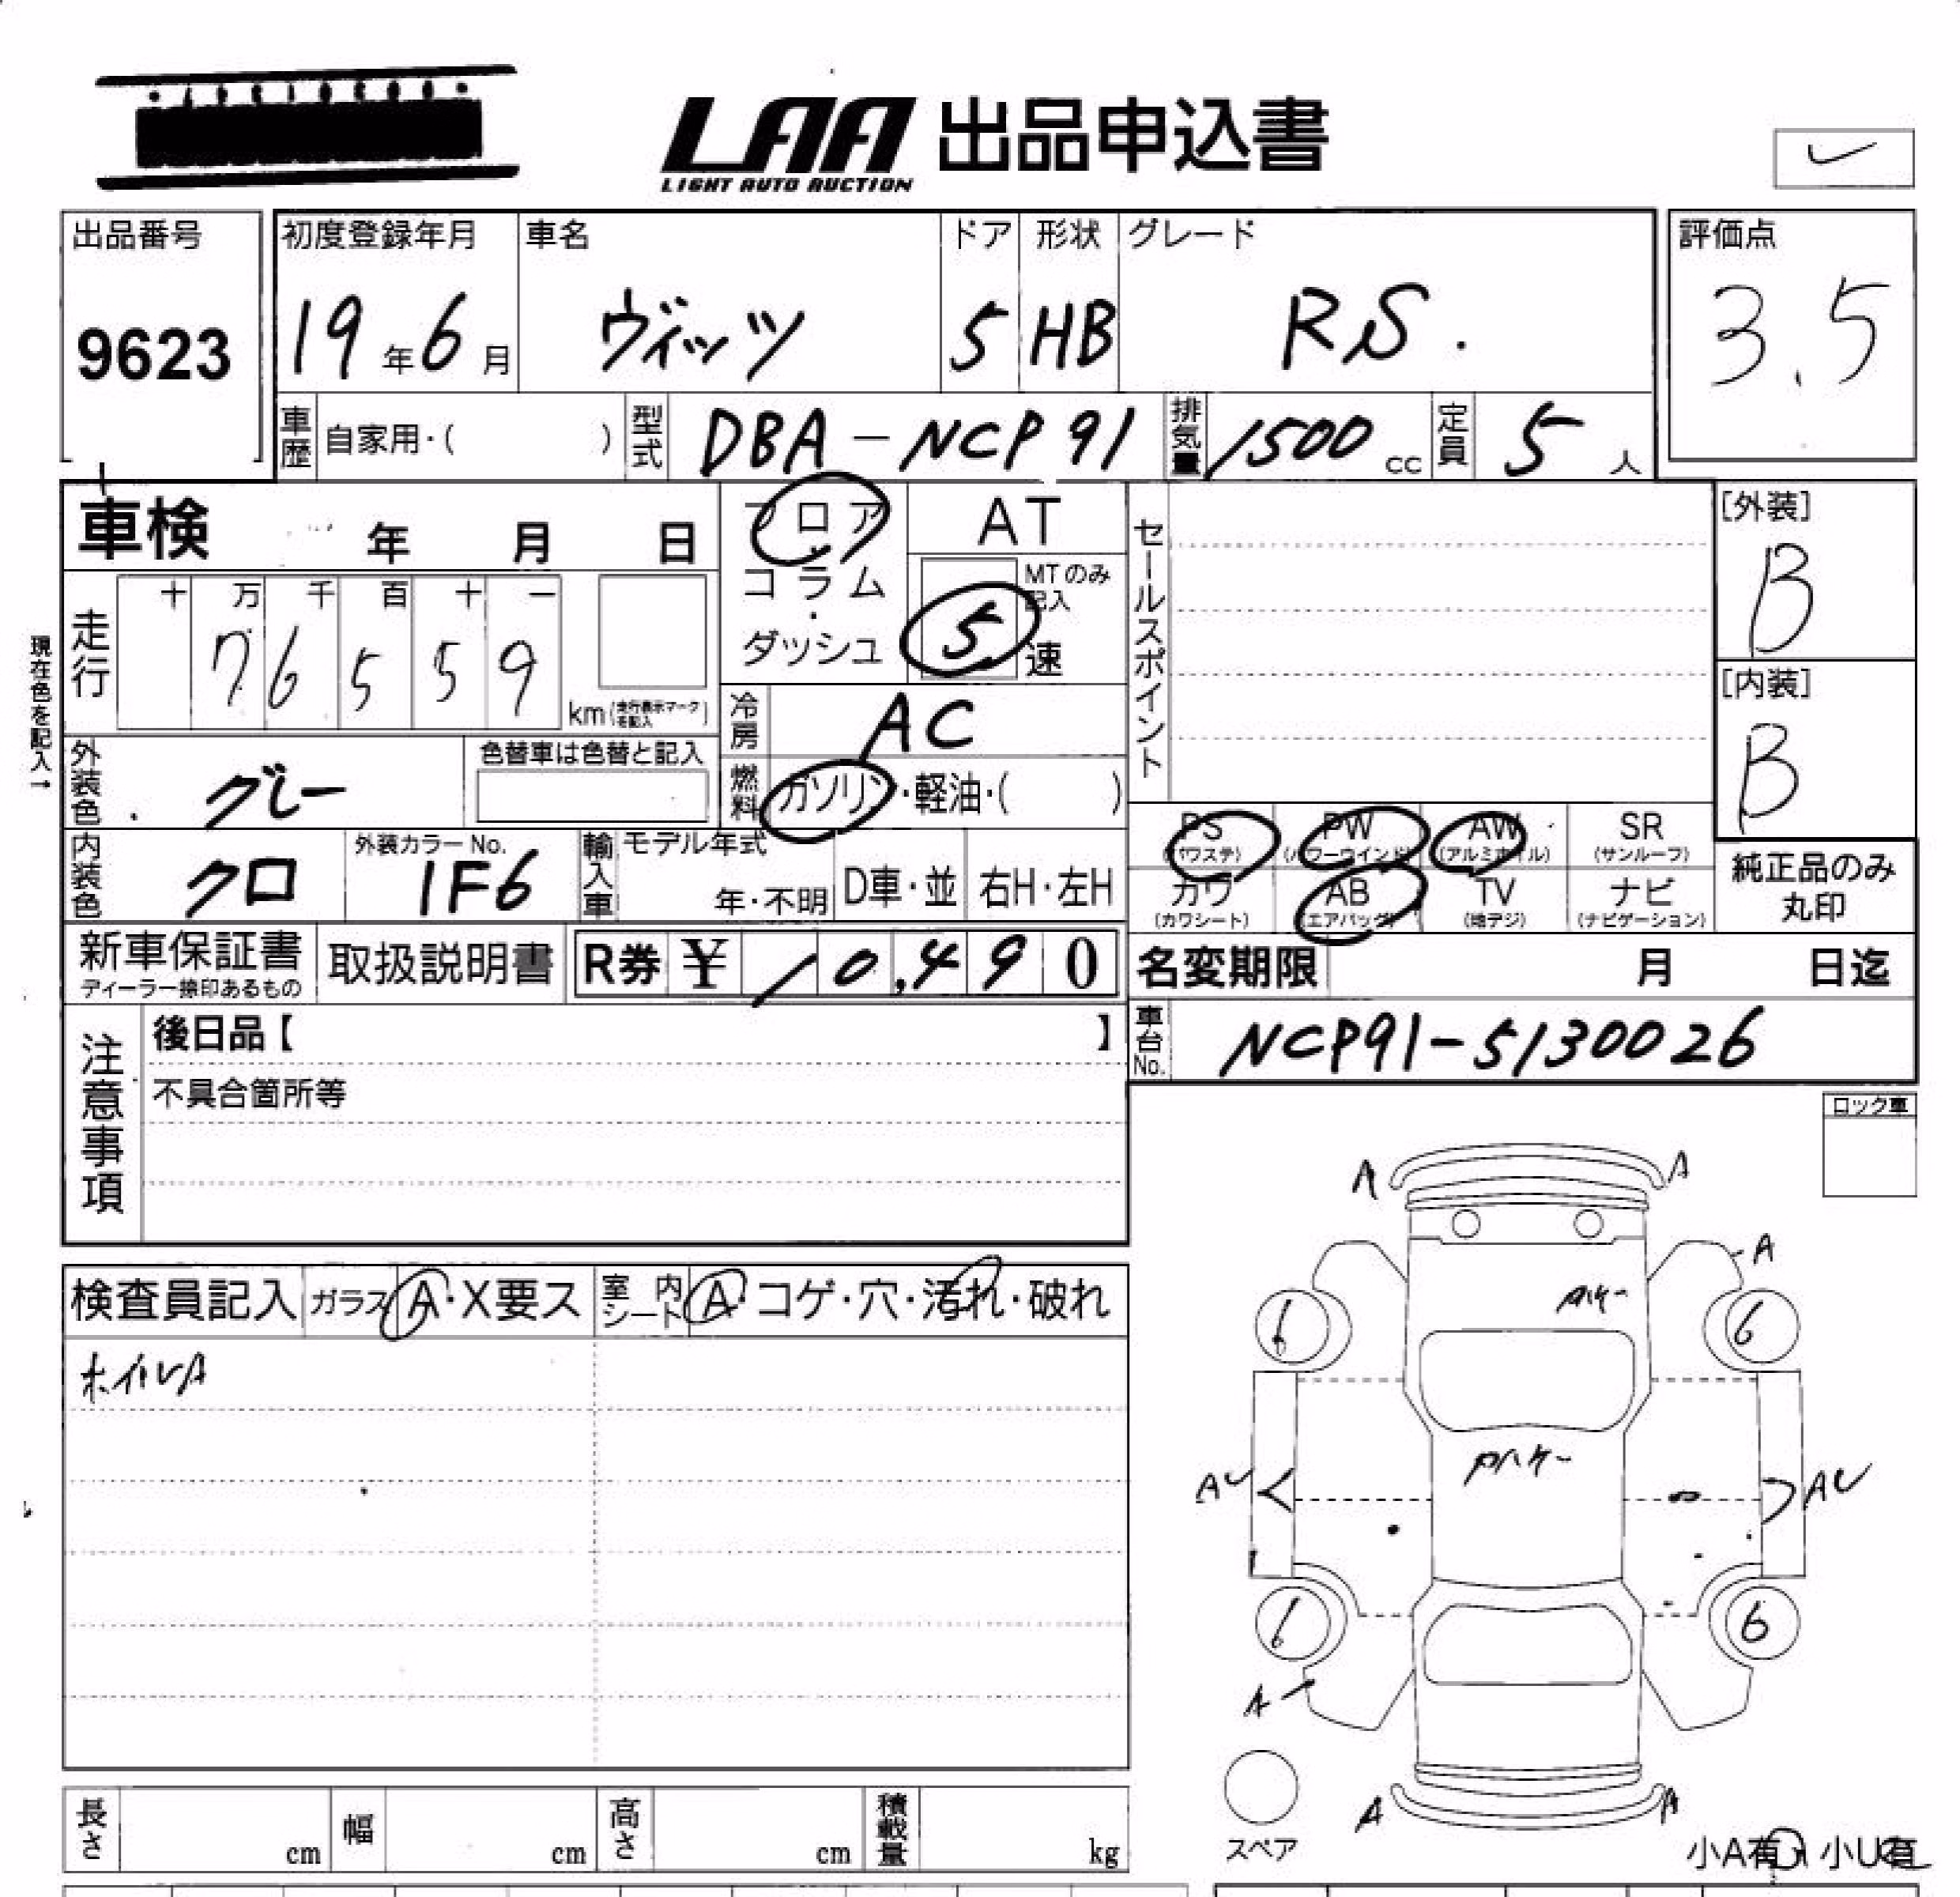 LAA 出品申込書
LIGHT AUTO AUCTION
出品番号 初度登録年月 車名 ドア 形状 グレード 評価点
9623 19年6月 ヴィッツ 5 HB RS. 3.5
車歴 自家用・( ) 型式 DBA-NCP91 排気量 1500cc 定員 5人
車検 年 月 日 フロア AT セールスポイント [外装]
B
コラム・ MTのみ記入
走行 十 万 千 百 十 一
76559 ダッシュ 5 速
km(走行表示マークを記入) [内装]
現在色を記入→
冷房 AC
B
外装色 グレー 色替車は色替と記入 燃料 ガソリン・軽油・( )
PS PW AW SR
(パワステ) (パワーウインド) (アルミホイル) (サンルーフ)
内装色 クロ 外装カラーNo. 1F6 輸入車 モデル年式 年・不明 D車・並 右H・左H
カワ AB TV ナビ
(カワシート) (エアバッグ) (地デジ) (ナビゲーション)
純正品のみ
丸印
新車保証書 取扱説明書 R券 ¥ 10,490 名変期限 月 日迄
ディーラー捺印あるもの
注意事項 後日品【 】 車台No. NCP91-5130026
不具合箇所等
ロック車
A A
A
検査員記入 ガラス A・X要ス 室内シート A・コゲ・穴・汚れ・破れ
6 6
ホイルA
AU AU
6 6
A
A A
スペア
長さ cm 幅 cm 高さ cm 積載量 kg
小A有 小U有